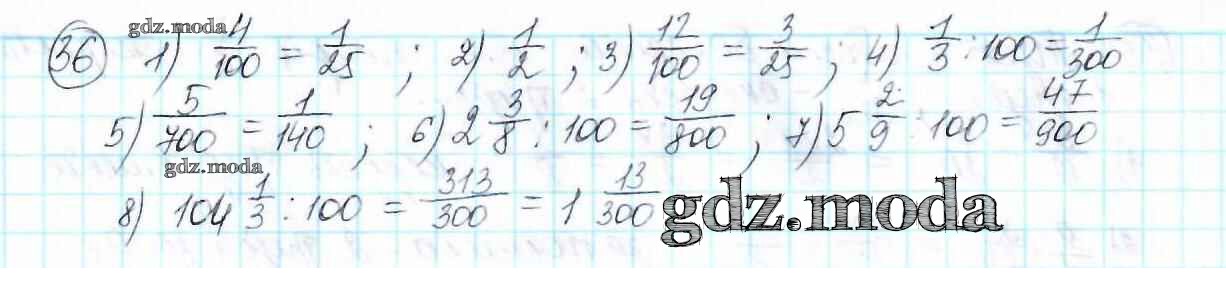 gdz.moda
36 1) 4/100 = 1/25 ; 2) 1/2 ; 3) 12/100 = 3/25 ; 4) 1/3 : 100 = 1/300
5) 5/700 = 1/140 ; 6) 2 3/8 : 100 = 19/800 ; 7) 5 2/9 : 100 = 47/900
gdz.moda
8) 104 1/3 : 100 = 313/300 = 1 13/300
gdz.moda